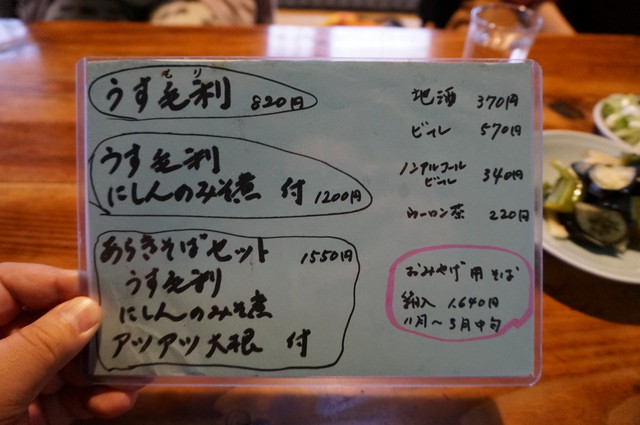 うす毛利 820円
もり
うす毛利
にしんのみそ煮 付 1200円
あらきそばセット 1550円
うす毛利
にしんのみそ煮
アツアツ大根 付
地酒 370円
ビール 570円
ノンアルコール
ビール 340円
ウーロン茶 220円
おみやげ用そば
箱入 1,640円
11月〜3月中旬